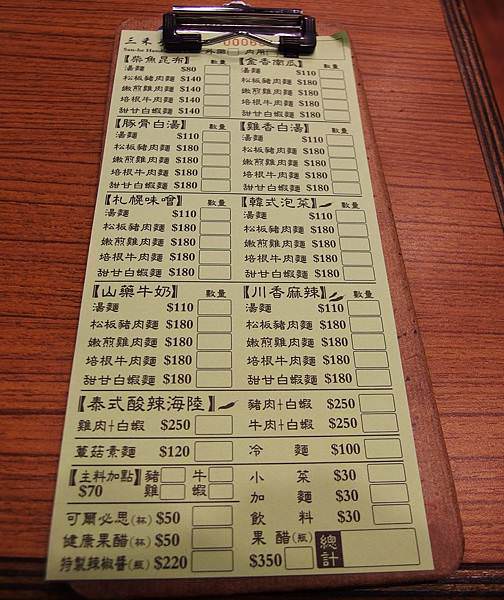 三禾
San-he Hand
外帶 內用
【柴魚昆布】 數量
湯麵 $80
松板豬肉麵 $140
嫩煎雞肉麵 $140
培根牛肉麵 $140
甜甘白蝦麵 $140
【金香南瓜】 數量
湯麵 $110
松板豬肉麵 $180
嫩煎雞肉麵 $180
培根牛肉麵 $180
甜甘白蝦麵 $180
【豚骨白湯】 數量
湯麵 $110
松板豬肉麵 $180
嫩煎雞肉麵 $180
培根牛肉麵 $180
甜甘白蝦麵 $180
【雞香白湯】 數量
湯麵 $110
松板豬肉麵 $180
嫩煎雞肉麵 $180
培根牛肉麵 $180
甜甘白蝦麵 $180
【札幌味噌】 數量
湯麵 $110
松板豬肉麵 $180
嫩煎雞肉麵 $180
培根牛肉麵 $180
甜甘白蝦麵 $180
【韓式泡菜】 數量
湯麵 $110
松板豬肉麵 $180
嫩煎雞肉麵 $180
培根牛肉麵 $180
甜甘白蝦麵 $180
【山藥牛奶】 數量
湯麵 $110
松板豬肉麵 $180
嫩煎雞肉麵 $180
培根牛肉麵 $180
甜甘白蝦麵 $180
【川香麻辣】 數量
湯麵 $110
松板豬肉麵 $180
嫩煎雞肉麵 $180
培根牛肉麵 $180
甜甘白蝦麵 $180
【泰式酸辣海陸】 豬肉+白蝦 $250
雞肉+白蝦 $250 牛肉+白蝦 $250
蕈菇素麵 $120 冷麵 $100
【主料加點】 豬 牛
$70 雞 蝦
小菜 $30
加麵 $30
飲料 $30
可爾必思(杯) $50
健康果醋(杯) $50
特製辣椒醬(瓶) $220
果醋(瓶)
$350
總計